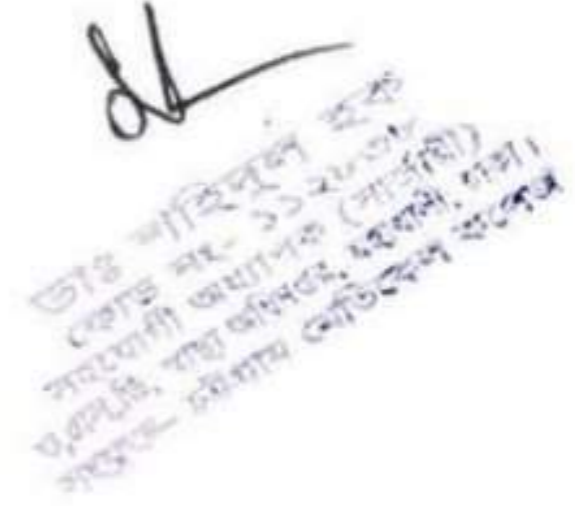 ডাঃ শহিদুল হক
কোড নং- ১১২০৩৮
সহযোগী অধ্যাপক (সার্জারী)
স্বাস্থ্য অধিদপ্তর, মহাখালী, ঢাকা।
সংযুক্ত- চট্টগ্রাম মেডিকেল কলেজ